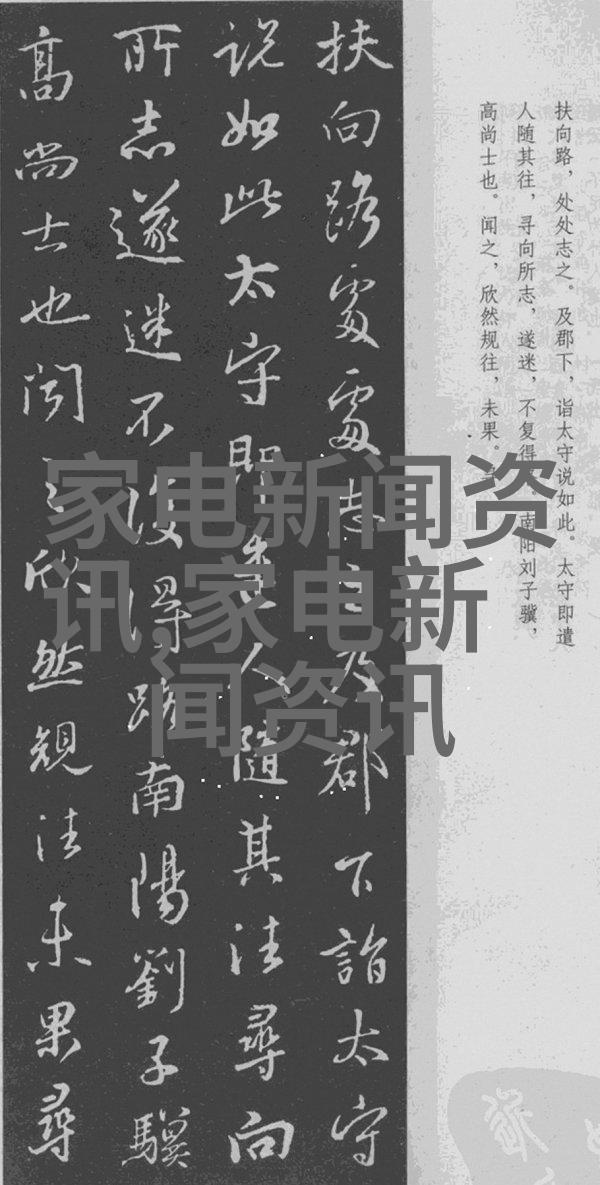 扶向路處處志之及郡下詣太守
说如此太守即遣人隨其往尋向
所志遂迷不復得路南陽劉子驥
高尚士也闻之欣然規往未果尋
扶向路，处处志之。及郡下，诣太守说如此。太守即遣
人随其往，寻向所志，遂迷，不复得 南阳刘子骥，
高尚士也。闻之，欣然规往，未果。
家电新闻资
讯,家电新
闻资讯